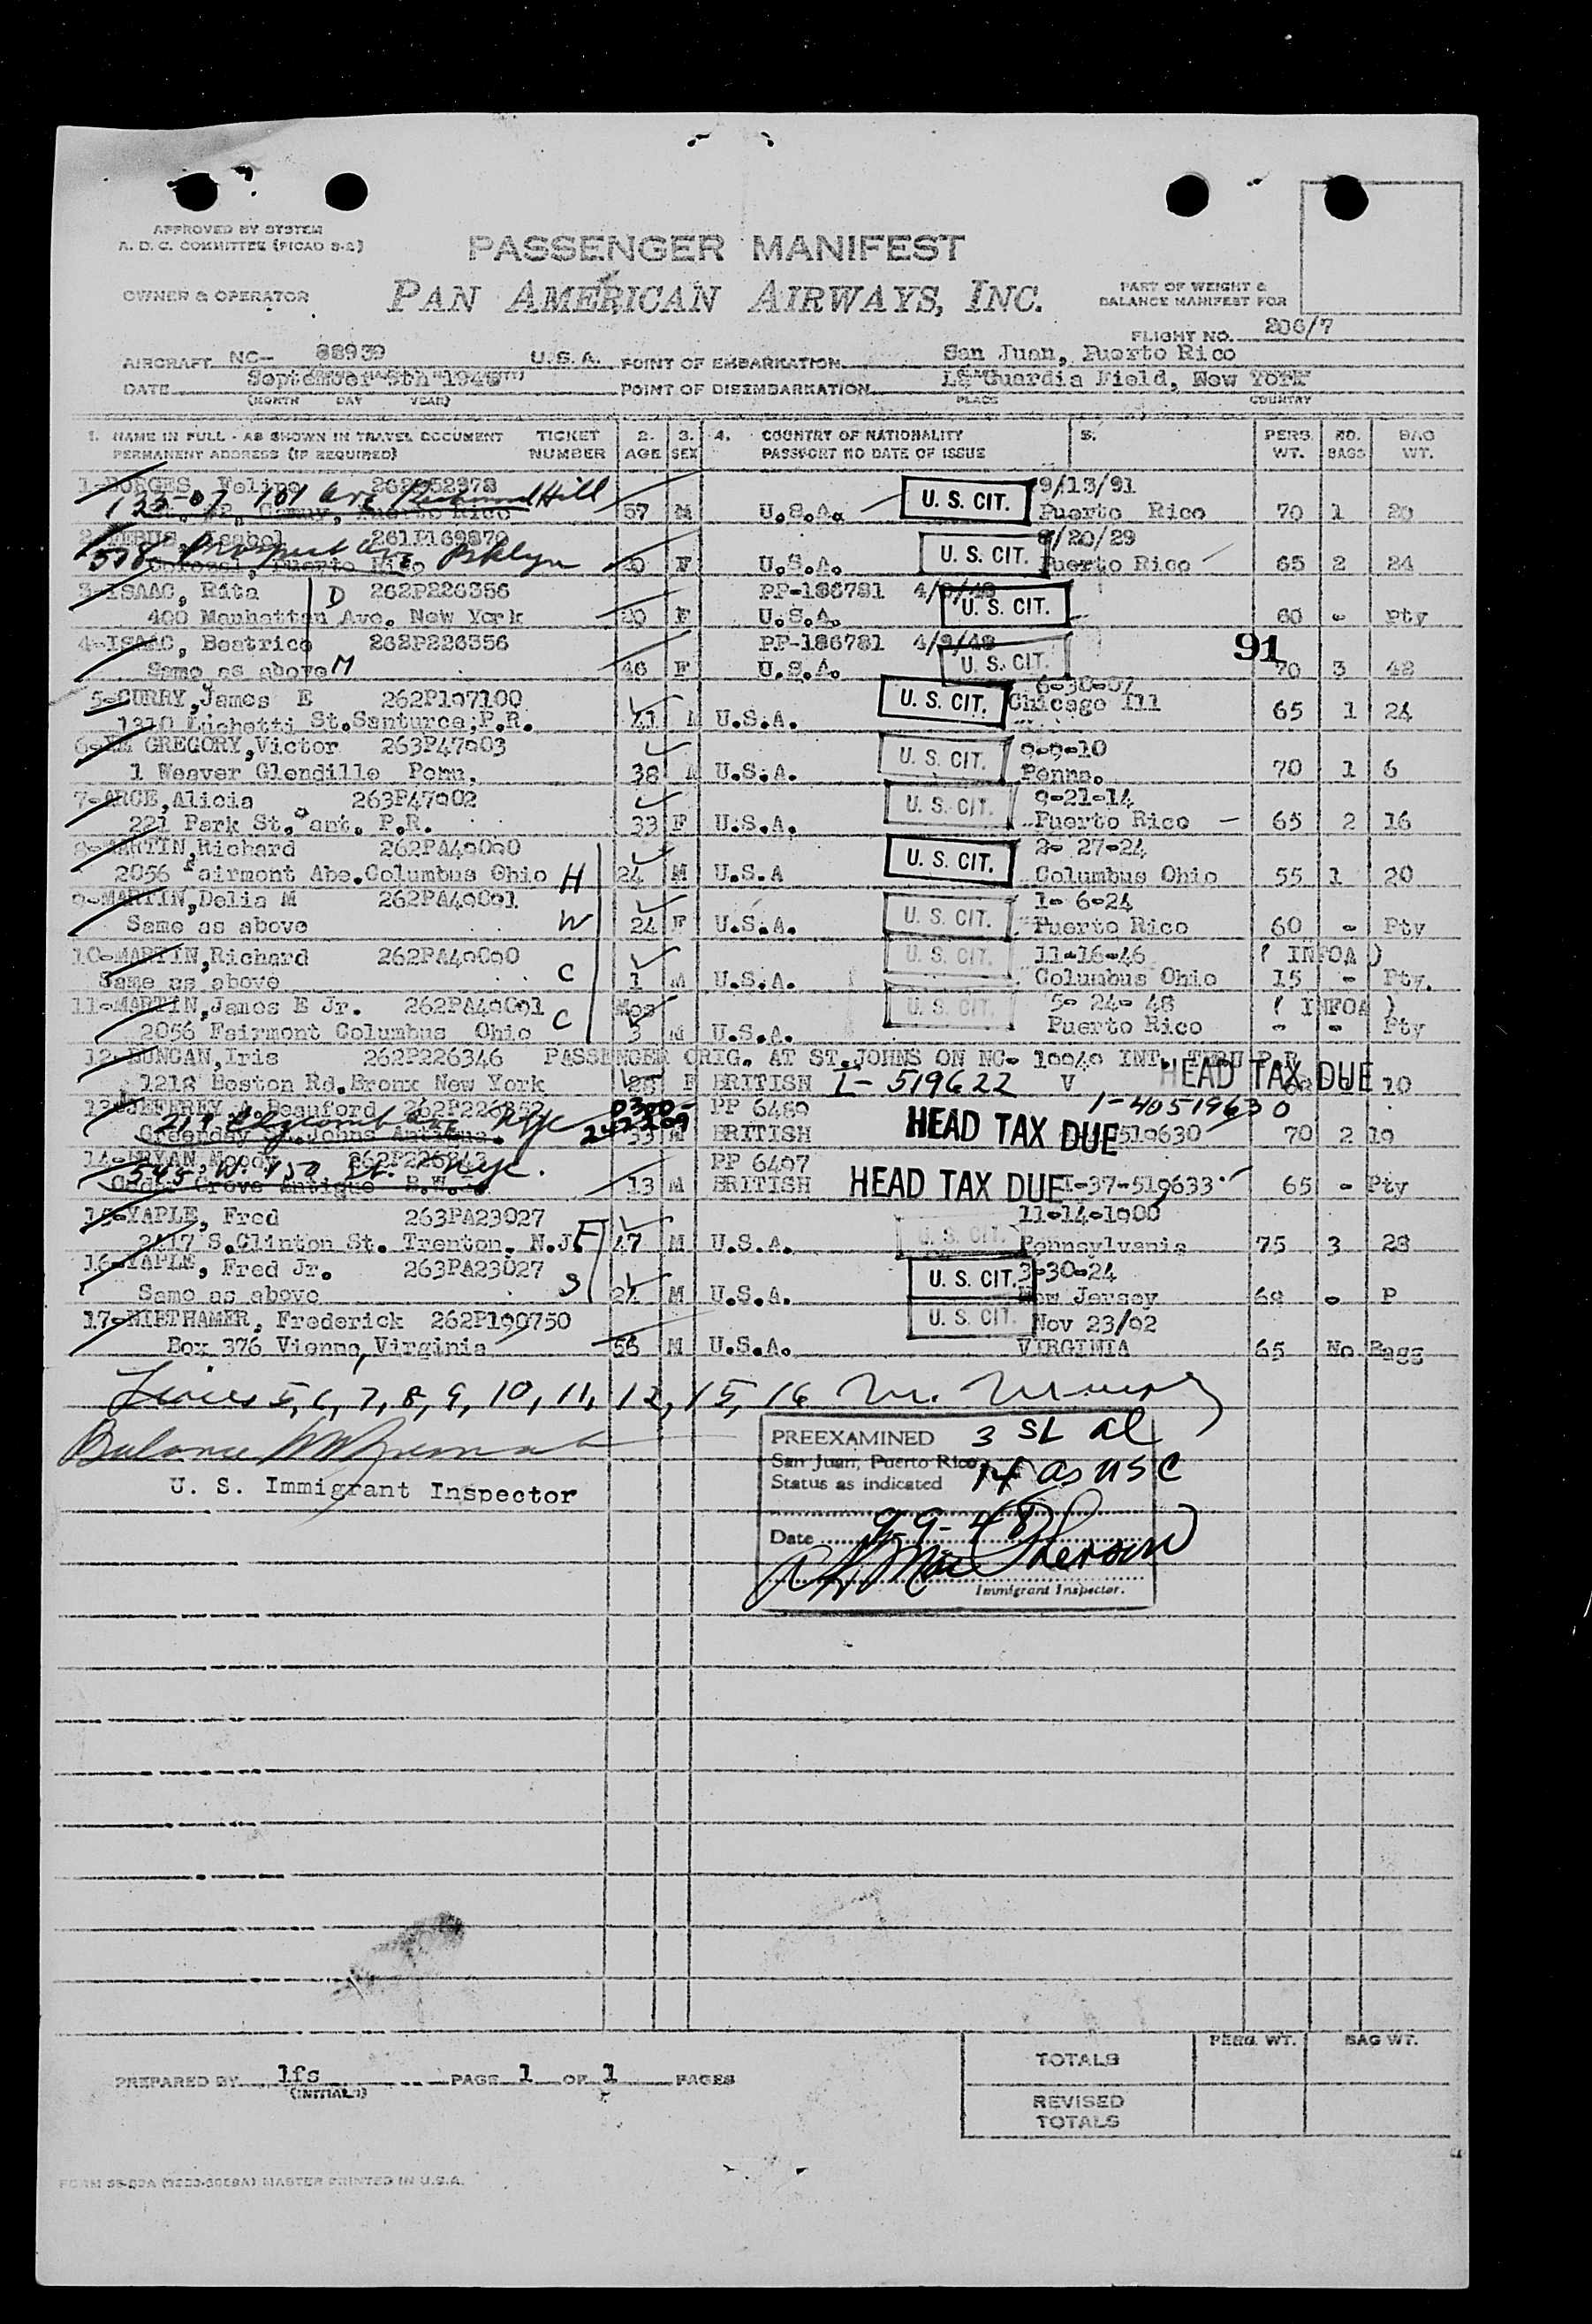 APPROVED BY SYSTEM
A. D. C. COMMITTEE (FICAO S-2)
PASSENGER MANIFEST
OWNER & OPERATOR
PAN AMERICAN AIRWAYS, INC.
PART OF WEIGHT &
BALANCE MANIFEST FOR
FLIGHT NO. 206/7
AIRCRAFT NC- 88939 U.S.A. POINT OF EMBARKATION San Juan, Puerto Rico
DATE September 1948 POINT OF DISEMBARKATION La Guardia Field, New York
(MONTH DAY YEAR) PLACE COUNTRY
1. NAME IN FULL - AS SHOWN IN TRAVEL DOCUMENT TICKET 2. 3. 4. COUNTRY OF NATIONALITY 5. PERS. NO. BAG
PERMANENT ADDRESS (IF REQUIRED) NUMBER AGE SEX PASSPORT NO DATE OF ISSUE WT. BAGS WT.
1-BORGES, Felipe 9/13/91
123-07 101 Ave Richmond Hill
Puerto Rico 57 M U.S.A. U. S. CIT. Puerto Rico 70 1 20
Isabel 261P169879 /20/29
578 Prospect Ave Bklyn
Puerto Rico F U.S.A. U. S. CIT. Puerto Rico 65 2 24
3-ISAAC, Rita D 262P226356 PP-186781
400 Manhattan Ave. New York 20 F U.S.A. U. S. CIT. 60 - Pty
4-ISAAC, Beatrice 262P226356 PP-186781 4/9/48 91
Same as above M 46 F U.S.A. U. S. CIT. 70 3 42
5-CURRY, James E 262P107100 6-30-07
1310 Luchetti St. Santurce, P.R. 41 U.S.A. U. S. CIT. Chicago Ill 65 1 24
GREGORY, Victor 263P47003 9-9-10
1 Weaver Glendille Penn. 38 U.S.A. U. S. CIT. Penna. 70 1 6
7-ARCE, Alicia 263P47002 9-21-14
221 Park St. Sant. P.R. 33 F U.S.A. U. S. CIT. Puerto Rico 65 2 16
8-MARTIN, Richard 262PA40000 2- 27-24
2056 Fairmont Abe. Columbus Ohio H 24 M U.S.A U. S. CIT. Columbus Ohio 55 1 20
9-MARTIN, Delia M 262PA40001 1- 6-24
Same as above W 24 F U.S.A. U. S. CIT. Puerto Rico 60 - Pty
10-MARTIN, Richard 262PA40000 11-16-46 ( INFOA )
Same as above C 1 M U.S.A. U. S. CIT. Columbus Ohio 15 - Pty.
11-MARTIN, James E Jr. 262PA40001 Mos 5- 24- 48 ( INFOA )
2056 Fairmont Columbus Ohio C 3 M U.S.A. U. S. CIT. Puerto Rico - - Pty
12-DUNCAN, Iris 262P226346 PASSENGER ORIG. AT ST. JOHNS ON NC- 10040 INT. THRU P.R.
1218 Boston Rd. Bronx New York F BRITISH I- 519622 V HEAD TAX DUE 10
13-JEFFREY A. Beauford 262P226352 PP 6480 I-40519630
33 M BRITISH HEAD TAX DUE 519630 70 2 19
14-BRYAN, Moody PP 6407
545 W. 150 St. Nyc.
13 M BRITISH HEAD TAX DUE I-37-519633 65 - Pty
15-YAPLE, Fred 263PA23027 11-14-1900
2417 S. Clinton St. Trenton, N.J. F 47 M U.S.A. U. S. CIT. Pennsylvania 75 3 28
16-YAPLE, Fred Jr. 263PA23027 3-30-24
Same as above S 24 M U.S.A. U. S. CIT. New Jersey 68 - P
17-NIETHAMER, Frederick 262P190750 Nov 23/92
Box 376 Vienna, Virginia 56 M U.S.A. U. S. CIT. VIRGINIA 65 No Bagg
Lines 5, 6, 7, 8, 9, 10, 11, 12, 15, 16
Balance
U. S. Immigrant Inspector
PREEXAMINED 3 SL al
San Juan, Puerto Rico
Status as indicated 14 as USC
Date 9-9-48
Immigrant Inspector.
TOTALS PERS. WT. BAG WT.
PREPARED BY lfs PAGE 1 OF 1 PAGES
(INITIALS)
REVISED
TOTALS
MASTER PRINTED IN U.S.A.